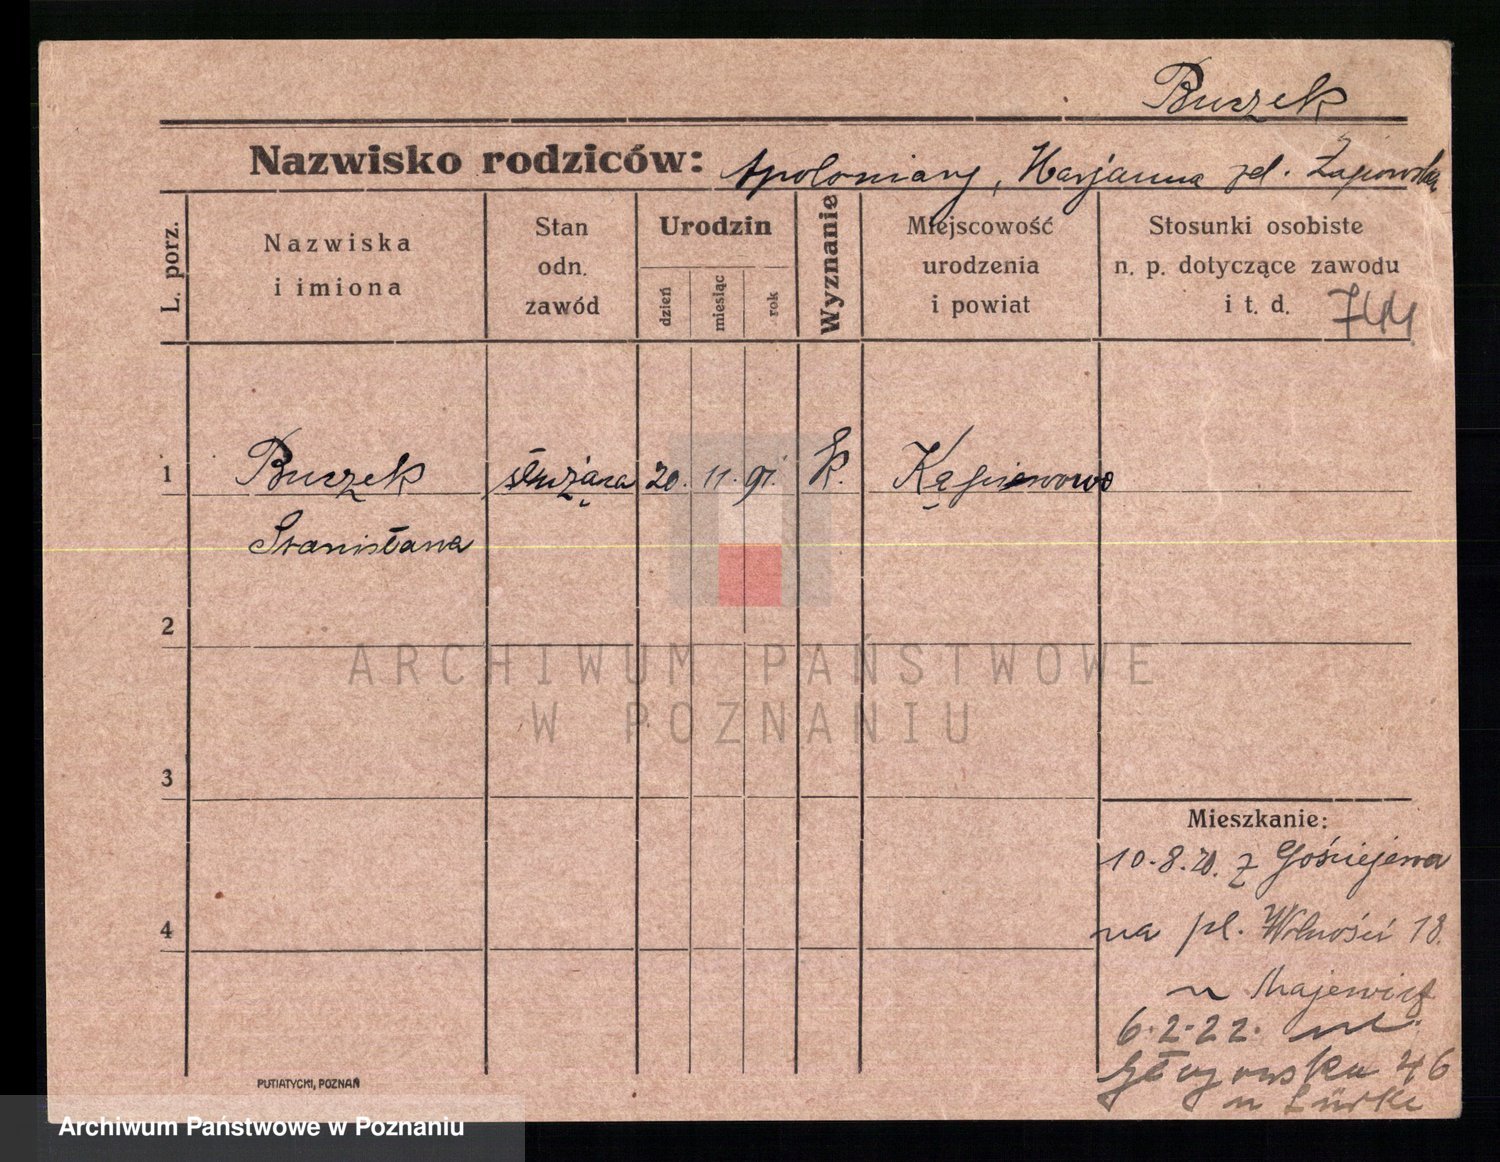 Buszek
Nazwisko rodziców: Apoloniary, Marjanna zd.
L. porz.
Nazwiska
i imiona
Stan
odn.
zawód
Urodzin
dzień
miesiąc
rok
Wyznanie
Miejscowość
urodzenia
i powiat
Stosunki osobiste
n. p. dotyczące zawodu
i t. d.
744
1 Buszek służąca 20. 11. 91. k.
Stanisława
2
ARCHIWUM PAŃSTWOWE
W POZNANIU
3
Mieszkanie:
10.8.20. z Gościejewa
4
na pl. Wolności 18.
u
6.2.22. ul.
Głogowska 46
u
PUTIATYCKI, POZNAŃ
Archiwum Państwowe w Poznaniu